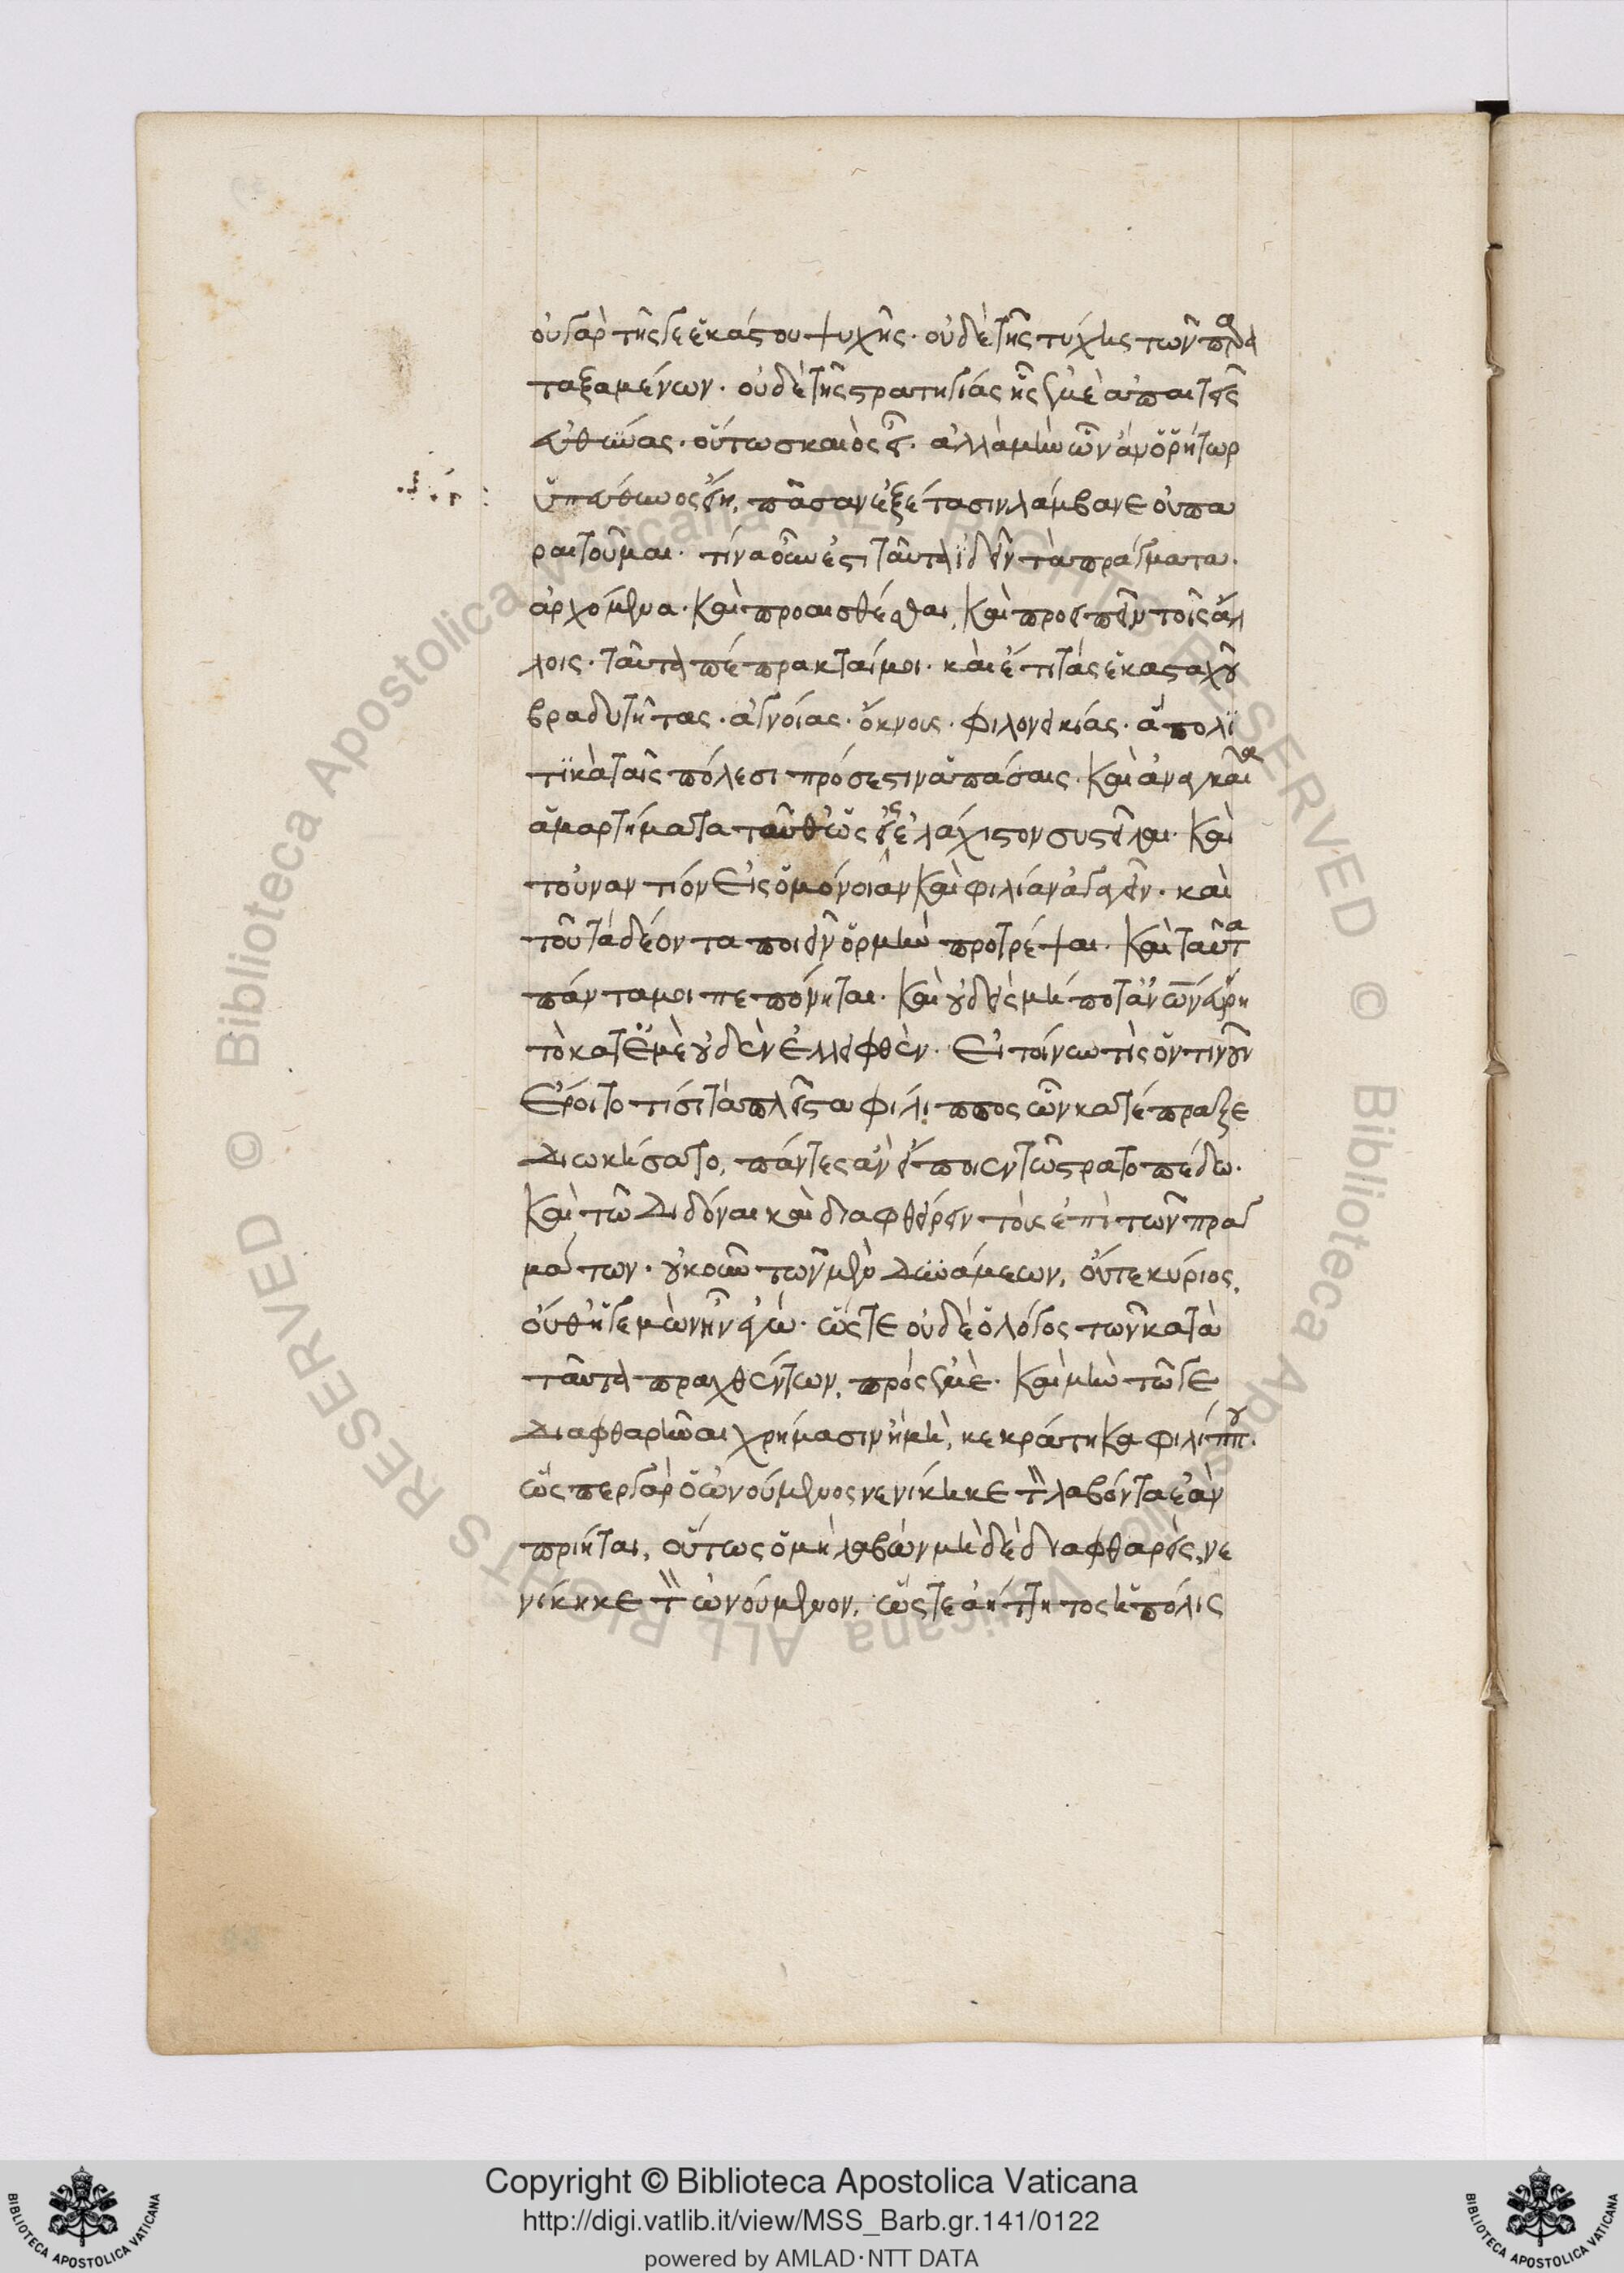 οὐ γὰρ τῆς γε ἑκάστου ψυχῆς· οὐδὲ τῆς τύχης τῶν παρα
ταξαμένων· οὐδὲ τῆς στρατηγίας ἧς ἐμὲ ἀπαιτεῖς
εὐθύνας· οὕτω σκαιὸς εἶ· ἀλλὰ μὴν ὧν ἂν ὁ ῥήτωρ
ὑπεύθυνος εἴη, πᾶσαν ἐξέτασιν λάμβανε οὐ πα
ραιτοῦμαι· τίνα οὖν ἐστι ταῦτα ἰδεῖν τὰ πράγματα·
ἀρχόμενα· καὶ προαισθέσθαι, καὶ προειπεῖν τοῖς ἄλ
λοις· ταῦτα πέπρακταί μοι· καὶ ἔτι τὰς ἑκασταχοῦ
βραδυτῆτας· ἀγνοίας· ὄκνους· φιλονεικίας· ἃ πολι
τικὰ ταῖς πόλεσι πρόσεστιν ἁπάσαις· καὶ ἀναγκαῖα
ἁμαρτήματα ταῦθ' ὡς εἰς ἐλάχιστον συστεῖλαι· καὶ
τοὐναντίον εἰς ὁμόνοιαν καὶ φιλίαν ἀγαγεῖν· καὶ
τοῦ τὰ δέοντα ποιεῖν ὁρμὴν προτρέψαι· καὶ ταῦτα
πάντα μοι πεπόνηται· καὶ οὐδεὶς μή ποτ' ἀνθρώπων εὕρη
τὸ κατ' ἐμὲ οὐδὲν ἐλλειφθέν· Εἰ τοίνυν τὶς ὁντινοῦν
ἔροιτο τίσι τὰ πλεῖστα φίλιππος ὧν κατέπραξε
διωκήσατο, πάντες ἂν εἴποιεν τῷ στρατοπέδω·
καὶ τῷ διδόναι καὶ διαφθείρειν τοὺς ἐπὶ τῶν πραγ
μάτων· οὐκοῦν τῶν μὲν δυνάμεων, οὔτε κύριος,
οὔθ' ἡγεμὼν ἦν ἐγώ· ὥστε οὐδὲ ὁ λόγος τῶν κατὰ
ταῦτα πραχθέντων, πρὸς ἐμέ· καὶ μὴν τῷ γε
διαφθαρῆναι χρήμασιν ἢ μὴ, κεκράτηκα φιλίππου·
ὥσπερ γὰρ ὁ ὠνούμενος νενίκηκε τὸν λαβόντα ἐὰν
πρίηται, οὕτως ὁ μὴ λαβὼν μηδὲ διαφθαρεὶς, νε
νίκηκε τὸν ὠνούμενον, ὥστε ἀήττητος ἡ πόλις
Copyright © Biblioteca Apostolica Vaticana
http://digi.vatlib.it/view/MSS_Barb.gr.141/0122
powered by AMLAD·NTT DATA